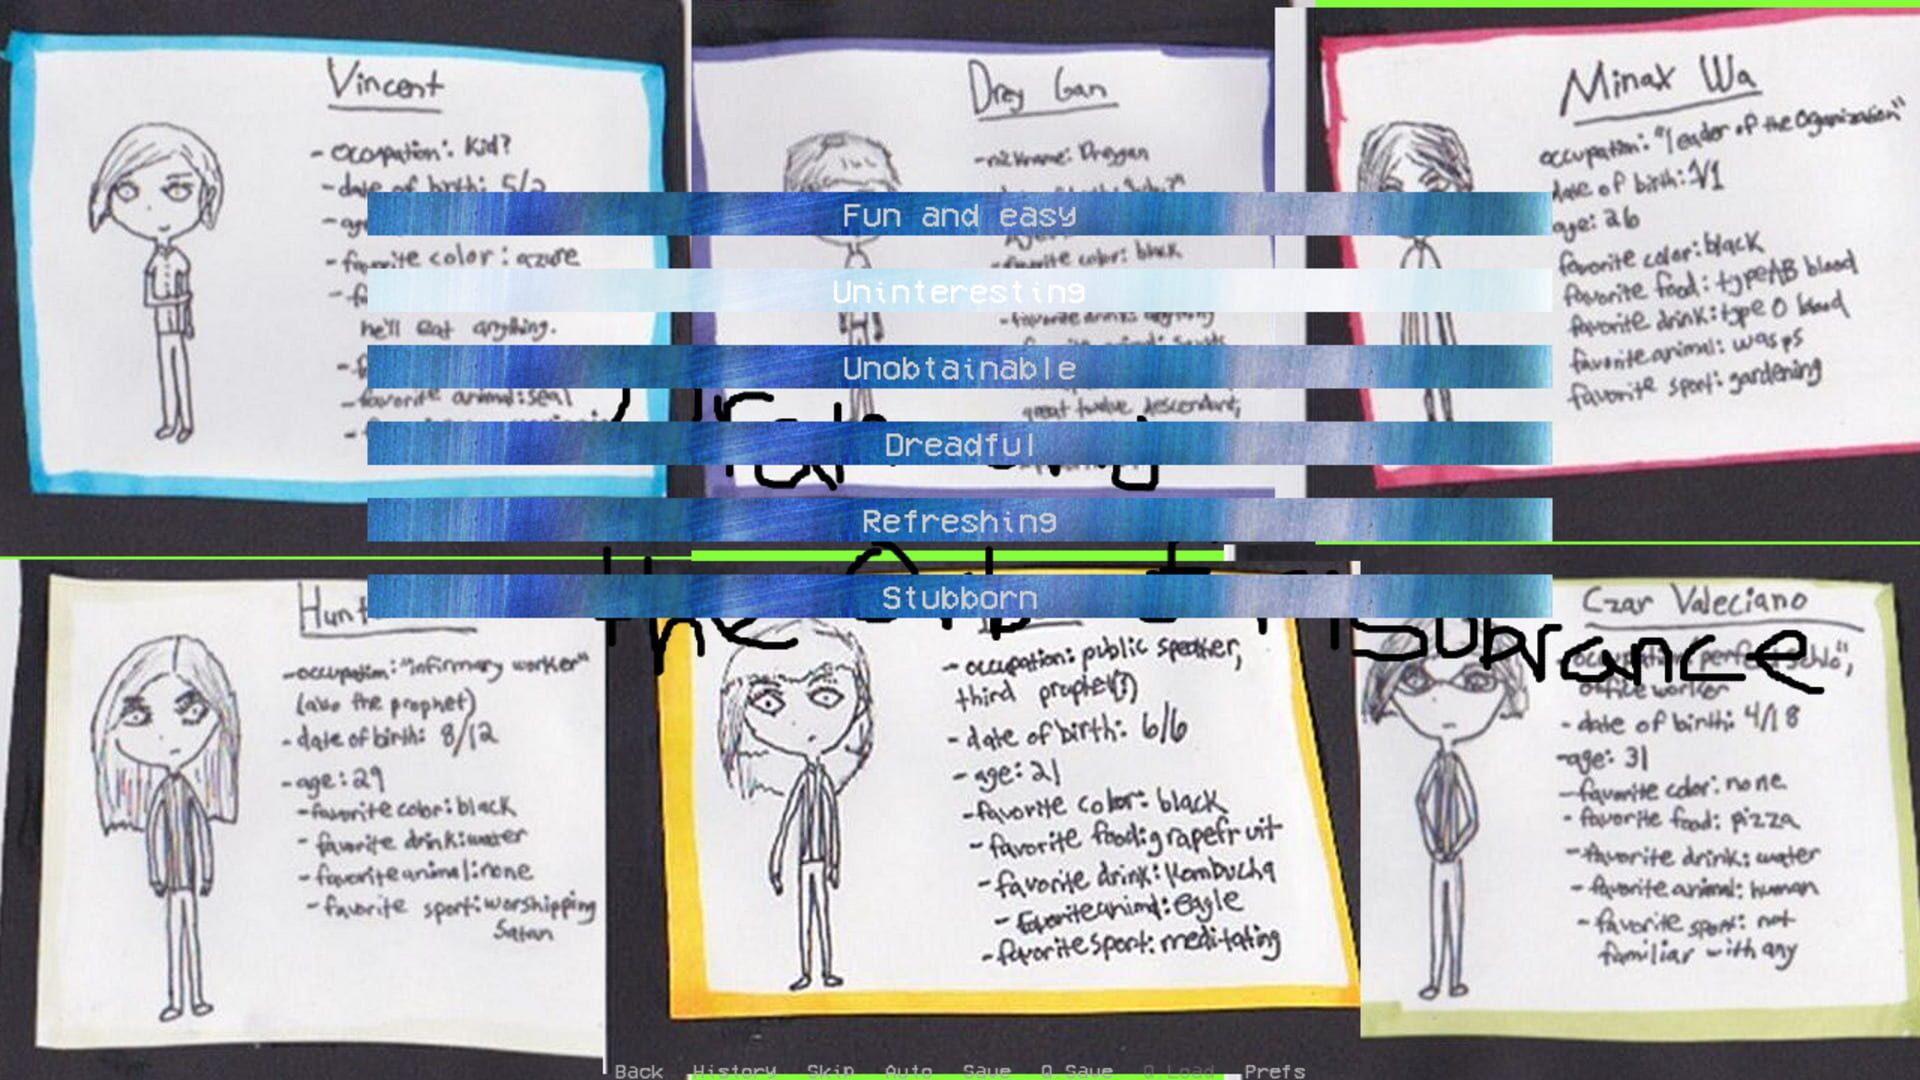 Vincent
- occupation: Kid?
- date of birth: 5/2
- favorite color: azure
he'll eat anything.
- favorite animal: seal
Drey Gan
- nickname: Dreygan
- favorite color: black
- favorite drink: anything
great twelve descendant,
Minax Wa
occupation: "leader of the Organization"
date of birth: 1/1
age: 26
favorite color: black
favorite food: type AB blood
favorite drink: type O blood
favorite animal: wasps
favorite sport: gardening
Fun and easy
Uninteresting
Unobtainable
Dreadful
Refreshing
Stubborn
the Orb of Insubrance
Hunt
- occupation: "infirmary worker"
(also the prophet)
- date of birth: 8/12
- age: 29
- favorite color: black
- favorite drink: water
- favorite animal: none
- favorite sport: worshipping
Satan
- occupation: public speaker,
third prophet(?)
- date of birth: 6/6
- age: 21
- favorite color: black
- favorite food: grapefruit
- favorite drink: Kombucha
- favorite animal: eagle
- favorite sport: meditating
Czar Valeciano
office worker
- date of birth: 4/18
- age: 31
- favorite color: none
- favorite food: pizza
- favorite drink: water
- favorite animal: human
- favorite sport: not
familiar with any
Back History Skip Auto Save Q.Save Q.Load Prefs